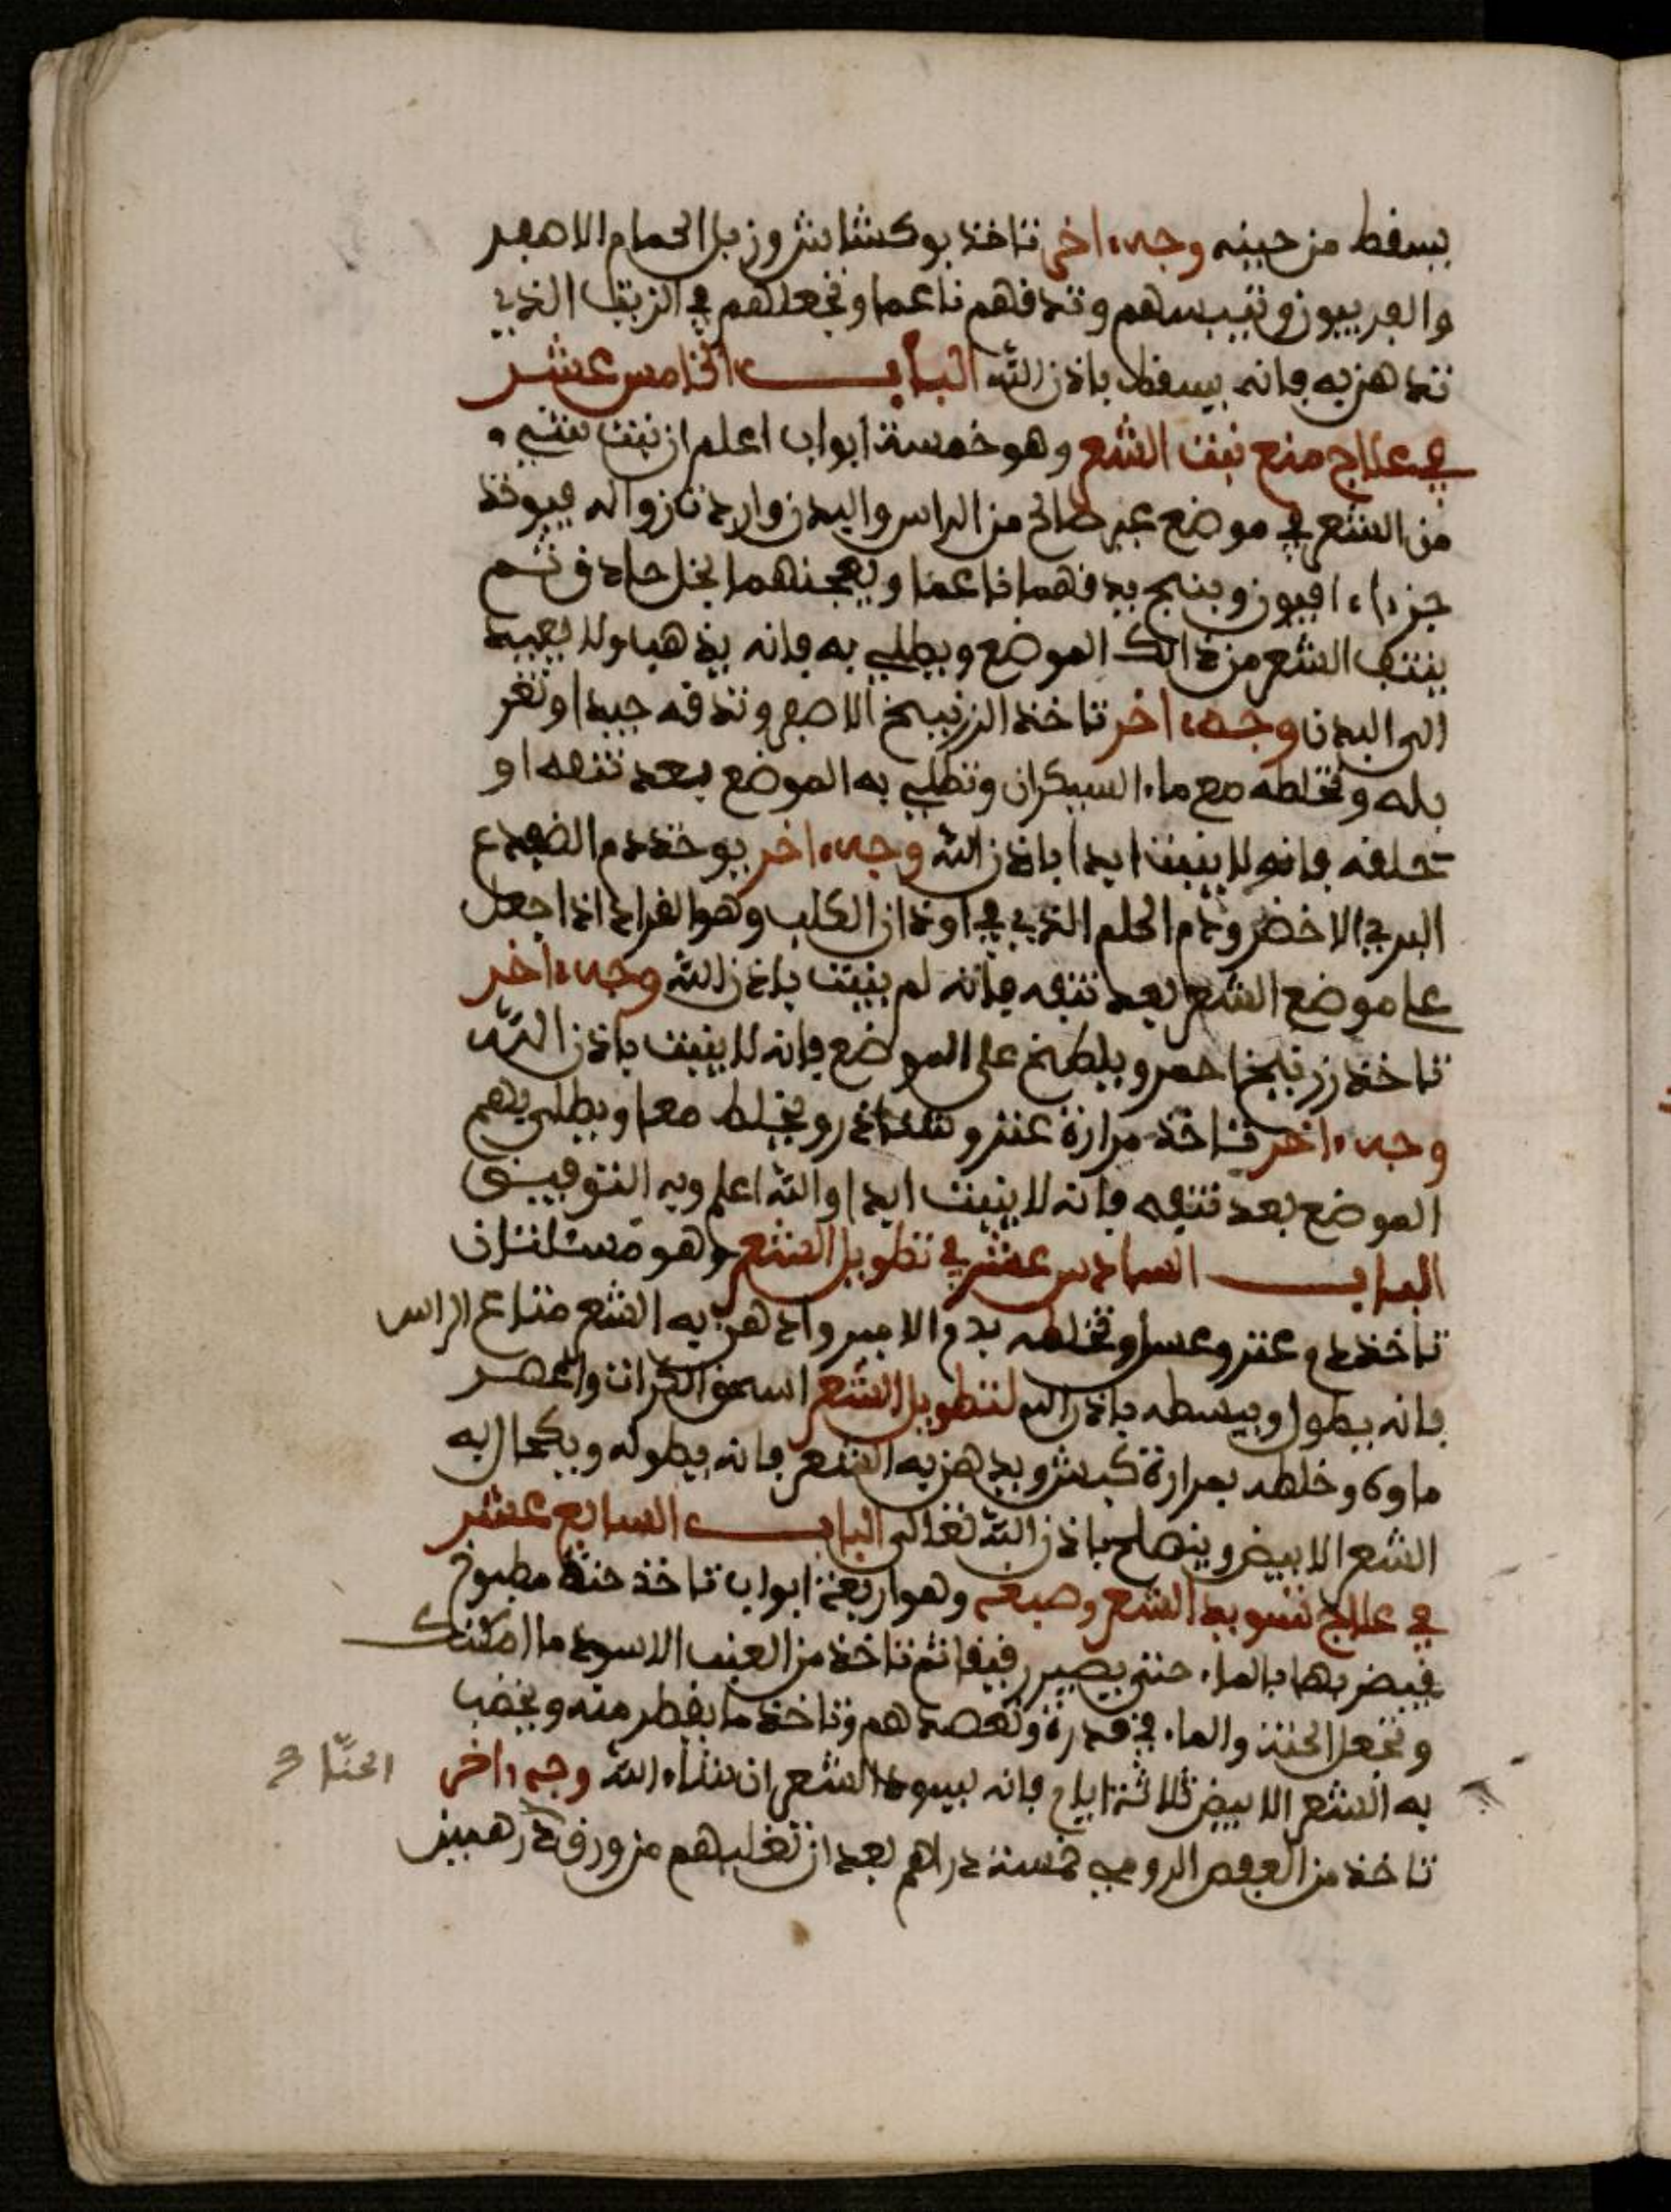 يسقط من حينه وجه اخر تاخذ بوكشاش وزبل الحمام الاصفر
والفربيون وتيبسهم وتدقهم ناعما وتجعلهم في الزيت الذي
تدهن به فانه يسقط باذن الله الباب الخامس عشر
في علاج منع نبت الشعر وهو خمسة ابواب اعلم ان نبت شيء
من الشعر في موضع غير صالح من الراس والبدن واردت زواله فيوخذ
جزءا افيون وبنج يدقهما ناعما ويعجنهما بخل حاذق ثم
ينتف الشعر من ذالك الموضع ويطلي به فانه يذهب ولا يعيد
الى البدن وجه اخر تاخذ الزرنيخ الاصفر وتدقه جيدا وتغر
بله وتخلطه مع ماء السيكران وتطلي به الموضع بعد نتفه او
تحلفه فانه لا ينبت ابدا باذن الله وجه اخر يوخذ دم الضفدع
البري الاخضر ودم الحلم الذي في اوذان الكلب وهو القراد اذا جعل
على موضع الشعر بعد نتفه فانه لم ينبت باذن الله وجه اخر
تاخذ زرنيخ احمر ويلطخ على الموضع فانه لا ينبت باذن الله
وجه اخر تاخذ مرارة عنز ونشاذر ويخلط معا ويطلى بهم
الموضع بعد نتفه فانه لا ينبت ابدا والله اعلم وبه التوفيق
الباب السادس عشر في تطويل الشعر وهو مسئلتان
تاخذ دم عنز وعسل وتخلطه بدم الامير وادهن به الشعر متاع الراس
فانه يطول ويبسطه باذن الله لتطويل الشعر اسحق الكراث واعصر
ماوه وخلطه بمرارة كبش ويدهن به الشعر فانه يطوله ويكحال به
الشعر الابيض وينصلح باذن الله تعالى الباب السابع عشر
في علاج تسويد الشعر وصبغه وهو اربعة ابواب تاخذ حنة مطبوخ
فيضربها بالماء حتى يصير رقيقا ثم تاخذ من العنب الاسود ما امكنك
وتجعل الحنة والماء في قدرة وتعصدهم وتاخذ ما يقطر منه ويخضب
به الشعر الابيض ثلاثة ايام فانه ليسود الشعر ان شاء الله وجه اخر
الحنّا 3
تاخذ من العفص الرومي خمسة دراهم بعد ان تغليهم من ورق درهمين